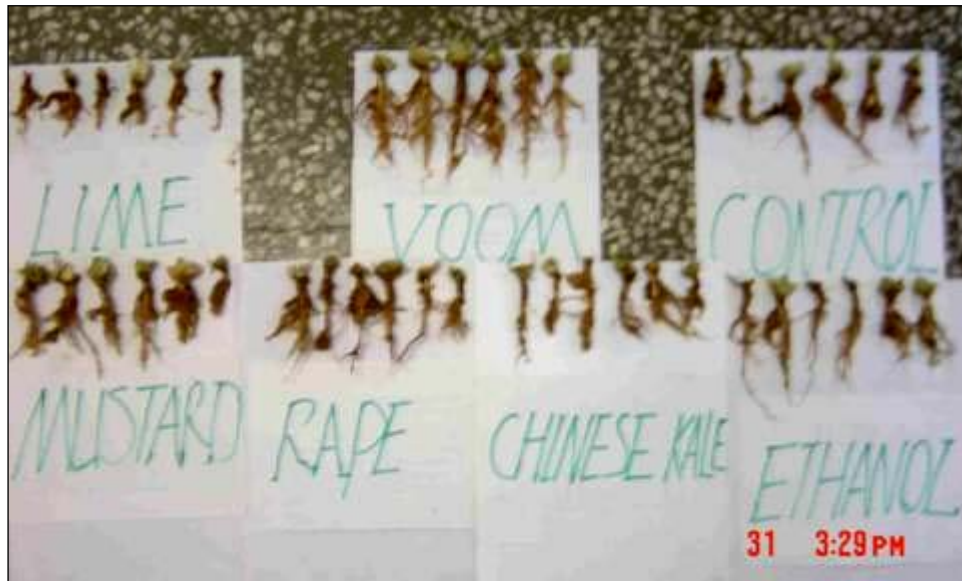 LIME
VOOM
CONTROL
MUSTARD
RAPE
CHINESE KALE
ETHANOL
31 3:29 PM